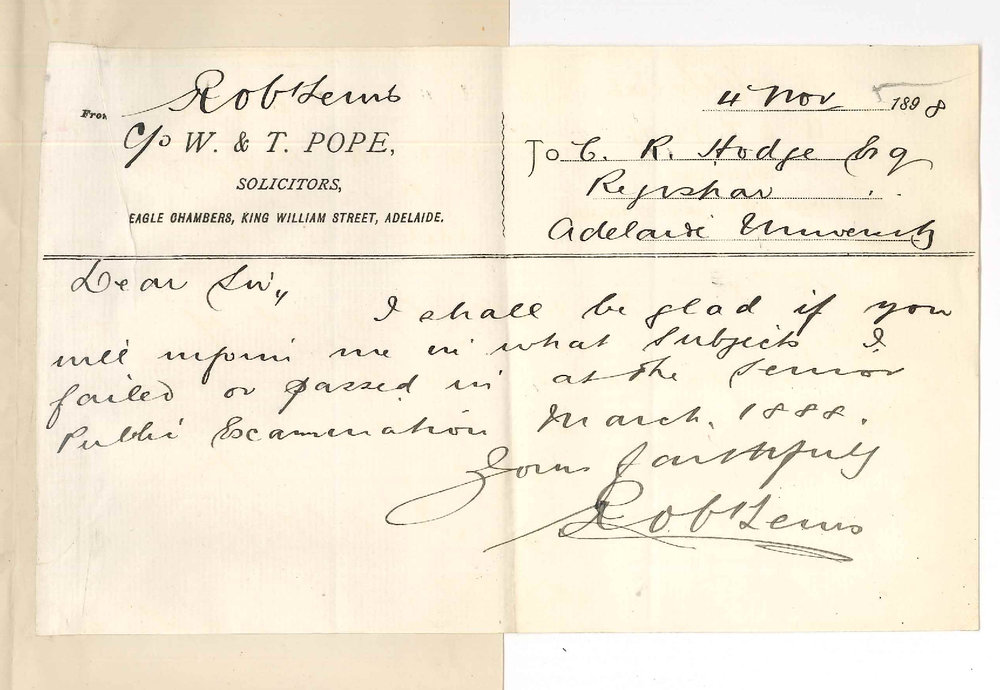 From Robt Lewis
C/o W. & T. POPE,
SOLICITORS,
EAGLE CHAMBERS, KING WILLIAM STREET, ADELAIDE.
4 Nov 1898
To C. R. Hodge Esq
Registrar
Adelaide University
Dear Sir,,
I shall be glad if you
will inform me in what subjects I
failed or passed in at the Senior
Public Examination March. 1888.
Yours faithfully
Robt Lewis